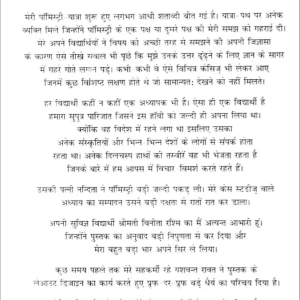 मेरी पॉमिस्ट्री यात्रा शुरू हुए लगभग आधी शताब्दी बीत गई है। यात्रा पथ पर अनेक
व्यक्ति मिले जिन्होंने पॉमिस्ट्री के एक पक्ष या दूसरे पक्ष की मेरी समझ को गहराई दी।
मेरे अपने विद्यार्थियों ने विषय को अच्छी तरह से समझने की अपनी जिज्ञासा
के कारण ऐसे तीखे सवाल भी पूछे कि मुझे उनके उत्तर ढूंढ़ने के लिए ज्ञान के सागर
में गहरे गोते लगाने पड़े। कभी कभी वे ऐसे विचित्र केसिज़ भी लेकर आए
जिनमें कुछ विशिष्ट लक्षण होते थे जो सामान्यत: देखने को नहीं मिलते।
हर विद्यार्थी कहीं न कहीं एक अध्यापक भी है। ऐसा ही एक विद्यार्थी है
हमारा सुपुत्र पारिजात जिसने इस हॉबी को जल्दी ही अपना लिया था।
क्योंकि वह विदेश में रहने लगा था इसलिए उसका
अनेक संस्कृतियों और भिन्न भिन्न देशों के लोगों से संपर्क होता
रहता था। अनेक दिलचस्प हाथों की तस्वीरें वह भी भेजता रहता है
जिनके बारे में हम आपस में विचार विमर्श करते रहते हैं।
उसकी पत्नी नन्दिता ने पॉमिस्ट्री बड़ी जल्दी पकड़ ली। मेरे केस स्टडीज़ वाले
अध्याय का सम्पादन उसने बड़ी दक्षता से रातों रात कर डाला।
अपनी सुविज्ञ विद्यार्थी श्रीमती विनीता रश्मि का मैं अत्यन्त आभारी हूं।
जिन्होंने पुस्तक का अनुवाद बड़ी निपुणता से कर दिया और
मेरा बहुत बड़ा भार अपने सिर ले लिया।
कुछ समय पहले तक मेरे सहकर्मी रहे यशवन्त रावत ने पुस्तक के
लेआउट डिज़ाइन का कार्य करते हुए प्रूफ-दर-प्रूफ बड़े धैर्य का परिचय दिया है।